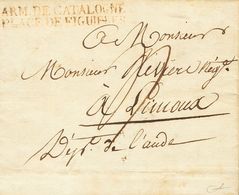 ARM. DE CATALOGNE
PLACE DE FIGUIERES
A Monsieur
Monsieur Reviere Négt.
à Limoux
Dépt. de l'aude